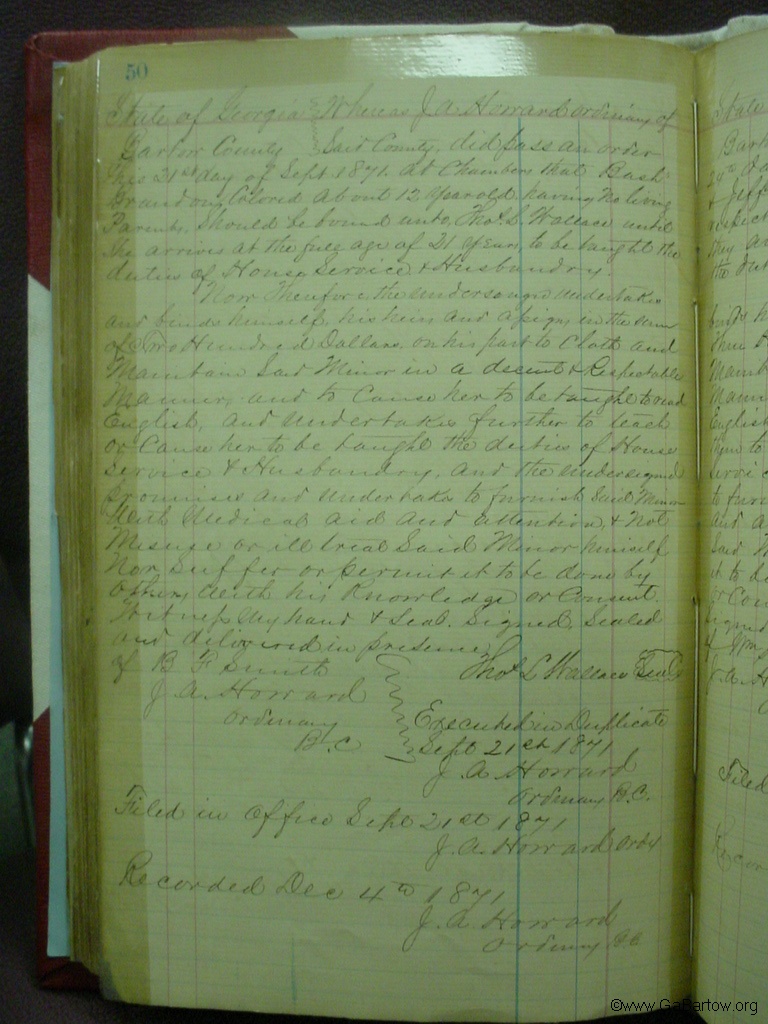 50
State of Georgia } Whereas J. A. Howard ordinary of
Bartow County } Said County, did pass an order
this 21st day of Sept 1871, at Chambers that
Brandon, Colored about 12 years old, having no living
Parents, Should be bound unto Thos. L. Wallace until
She arrives at the full age of 21 years, to be taught the
duties of House Service & Husbandry.
Now Therefore the undersigned undertakes
and binds himself, his heirs and assigns, in the sum
of Two Hundred Dollars, on his part to Cloth and
Maintain Said Minor in a decent & Respectable
Manner, and to Cause her to be taught to read
English, and undertakes further to teach
or Cause her to be taught the duties of House
Service & Husbandry, and the undersigned
promises and undertake to furnish Said Minor
with Medical aid and attention, & not
Misuse or ill treat Said Minor himself
Nor Suffer or permit it to be done by
others with his Knowledge or Consent.
Witness my hand & Seal. Signed, Sealed
and delivered in presence
of B F Smith Thos L Wallace Seal
J. A. Howard
ordinary Executed in Duplicate
B. C Sept 21st 1871
J. A. Howard
ordinary B. C.
Filed in office Sept 21st 1871
J. A. Howard ordy
Recorded Dec 4th 1871
J. A. Howard
ordinary BC
State
Bart
respect
they a
the dut
Maint
Mann
English
Servic
to furn
and a
Said M
it to d
or Con
Signed
J. A. H
Filed
Recor
©www.GaBartow.org